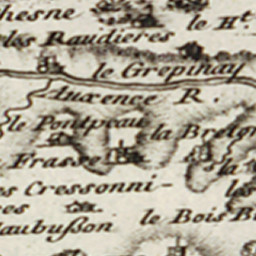 hesne
le Ht.
les Raudieres
le Grepinay
Auxence R.
le Pontpeau
la Breton
Frasse
la
es Cressonni-
res
les
aubußon
le Bois B